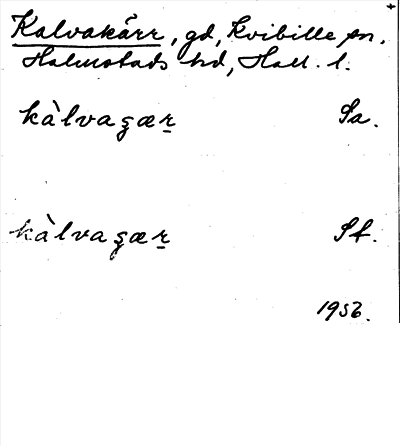 Kalvakärr, gd, Kvibille sn.
Halmstads hd, Hall. l.
kàlvaʂær̲ Sa.
kàlvaʂær̲ Sf.
1953.